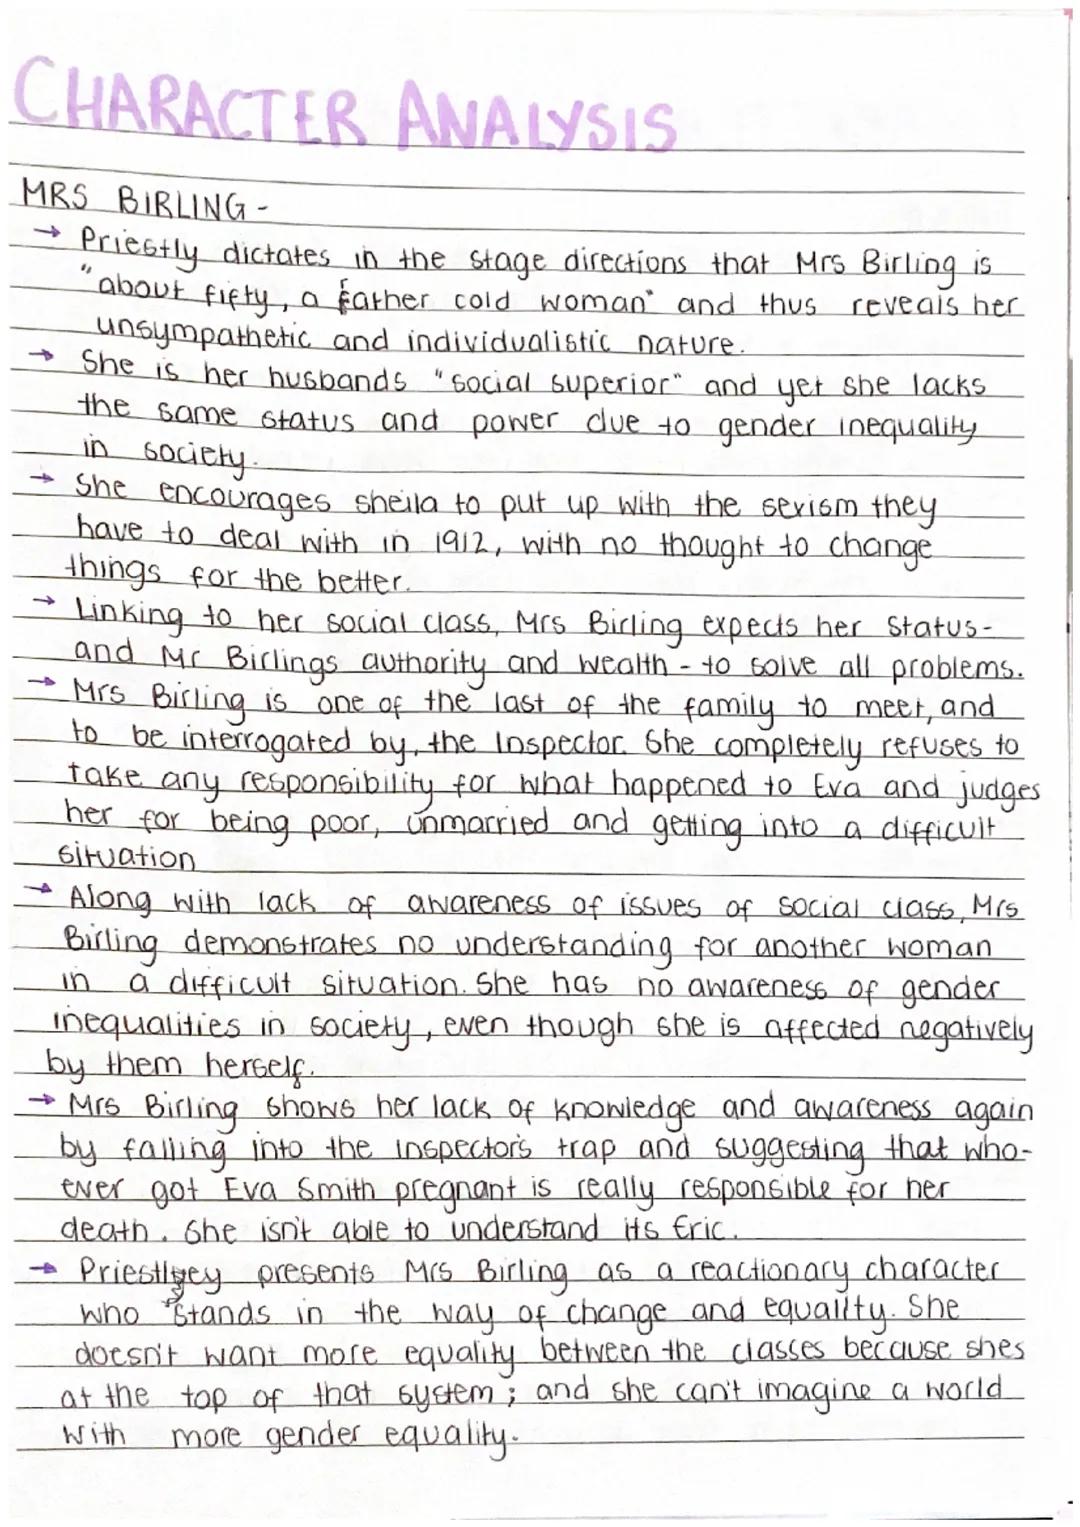 CHARACTER ANALYSIS
MRS BIRLING -
→ Priestly dictates in the stage directions that Mrs Birling is
"about fifty, a rather cold woman" and thus reveals her
unsympathetic and individualistic nature.
→ She is her husbands "social superior" and yet she lacks
the same status and power due to gender inequality
in society.
→ She encourages sheila to put up with the sexism they
have to deal with in 1912, with no thought to change
things for the better.
→ Linking to her social class, Mrs Birling expects her status -
and Mr Birlings authority and wealth - to solve all problems.
→ Mrs Birling is one of the last of the family to meet, and
to be interrogated by, the Inspector. She completely refuses to
take any responsibility for what happened to Eva and judges
her for being poor, unmarried and getting into a difficult
situation
→ Along with lack of awareness of issues of social class, Mrs
Birling demonstrates no understanding for another woman
in a difficult situation. She has no awareness of gender
inequalities in society, even though she is affected negatively
by them herself.
→ Mrs Birling shows her lack of knowledge and awareness again
by falling into the inspector's trap and suggesting that who-
ever got Eva Smith pregnant is really responsible for her
death. She isn't able to understand its Eric.
→ Priestley presents Mrs Birling as a reactionary character
who stands in the way of change and equailty. She
doesn't want more equality between the classes because shes
at the top of that system; and she can't imagine a world
with more gender equality.